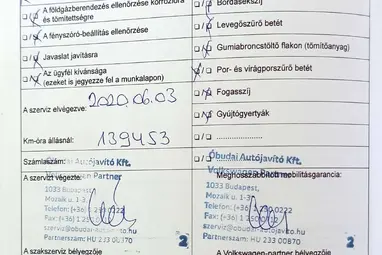 A földgázberendezés ellenőrzése korrózióra és tömítettségre
A fényszóró-beállítás ellenőrzése
Javaslat javításra
Az ügyfél kívánsága
(ezeket is jegyezze fel a munkalapon)
A szerviz elvégezve: 2020.06.03
Km-óra állásnál: 139453
Számlaszám:
Óbudai Autójavító Kft.
A szervizt végezte:
Volkswagen Partner
1033 Budapest,
Mozaik u. 1-3.
Telefon: (+36) 1 250 0222
Fax: (+36) 1
szerviz@obudaiautojavito.hu
Partnerszám: HU 233 00870
2
A szakszerviz bélyegzője
Bordásékszíj
Levegőszűrő betét
Gumiabroncstöltő flakon (tömítőanyag)
Por- és virágporszűrő betét
Fogasszíj
Gyújtógyertyák
Óbudai Autójavító Kft.
Volkswagen Partner
Meghosszabbított mobilitásgarancia:
1033 Budapest,
Mozaik u. 1-3.
Telefon: (+36) 1 250 0222
Fax: (+36) 1
szerviz@obudaiautojavito.hu
Partnerszám: HU 233 00870
2
A Volkswagen-partner bélyegzője